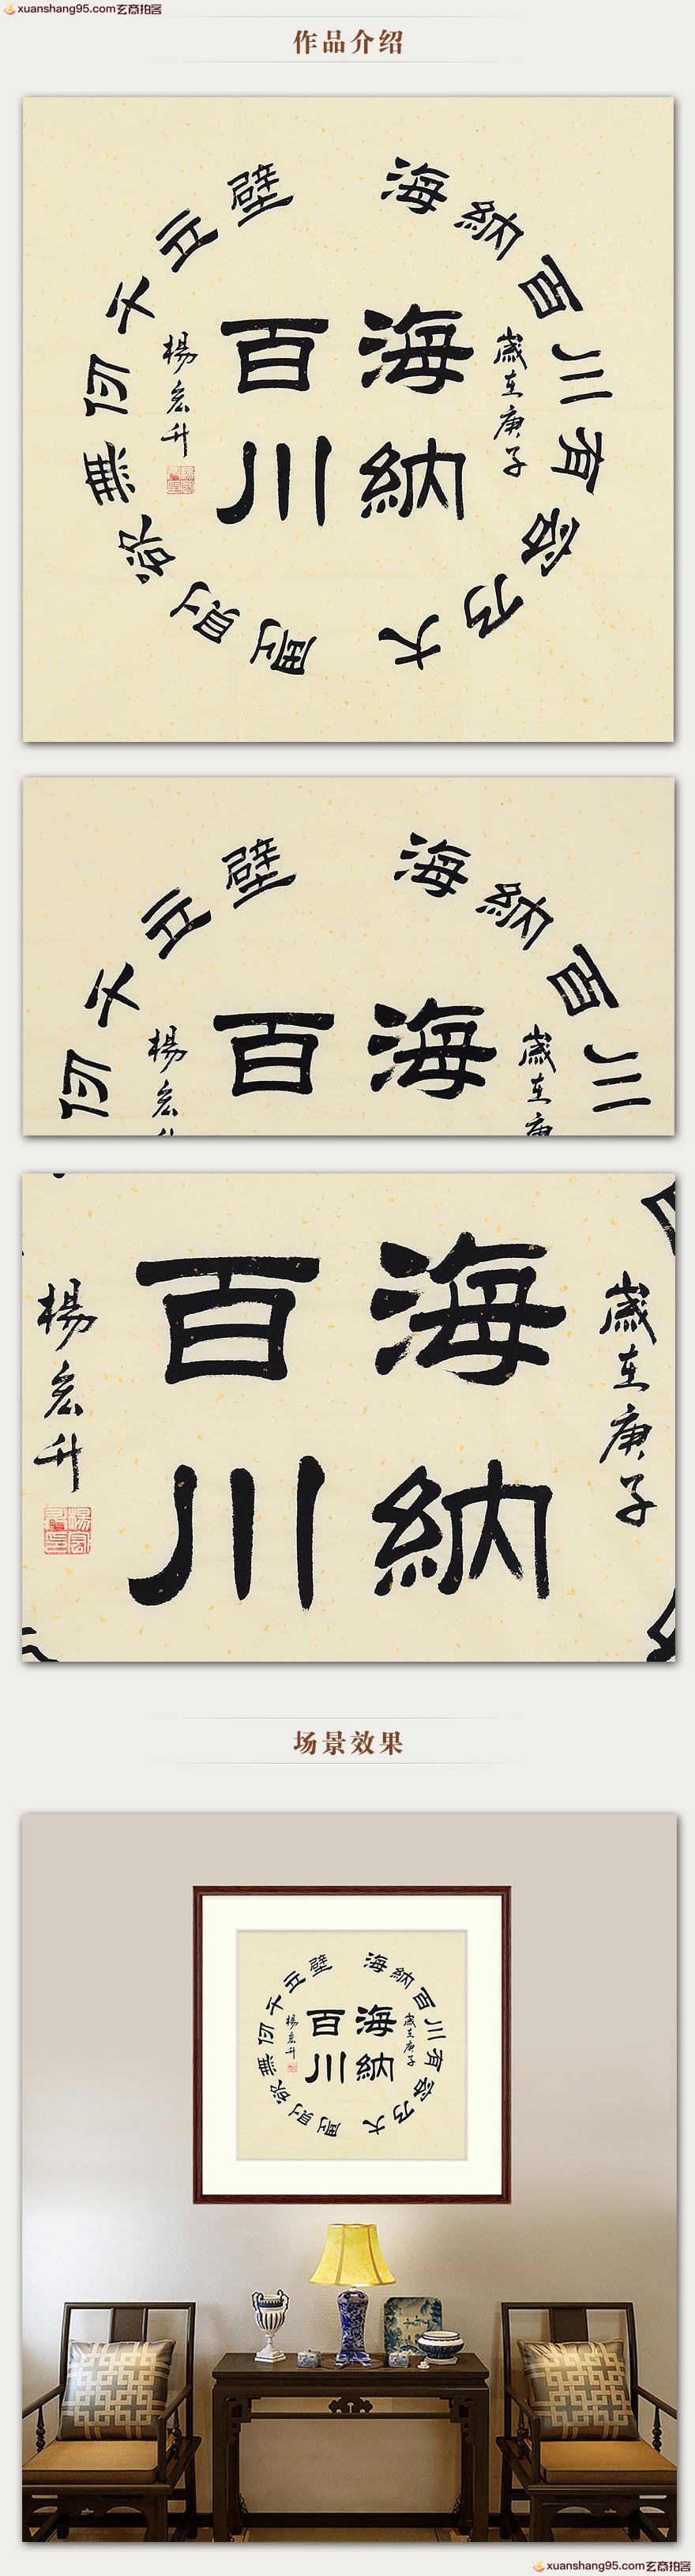 xuanshang95.com玄商拍客
作品介绍
海納百川有容乃大
壁立千仞無欲則剛
海納
百川
歲在庚子
楊宏升
海納百川
壁立千仞
海
百
歲在庚
楊宏
海納
百川
歲在庚子
楊宏升
场景效果
海納百川有容乃大
壁立千仞無欲則剛
海納
百川
歲在庚子
楊宏升
xuanshang95.com玄商拍客